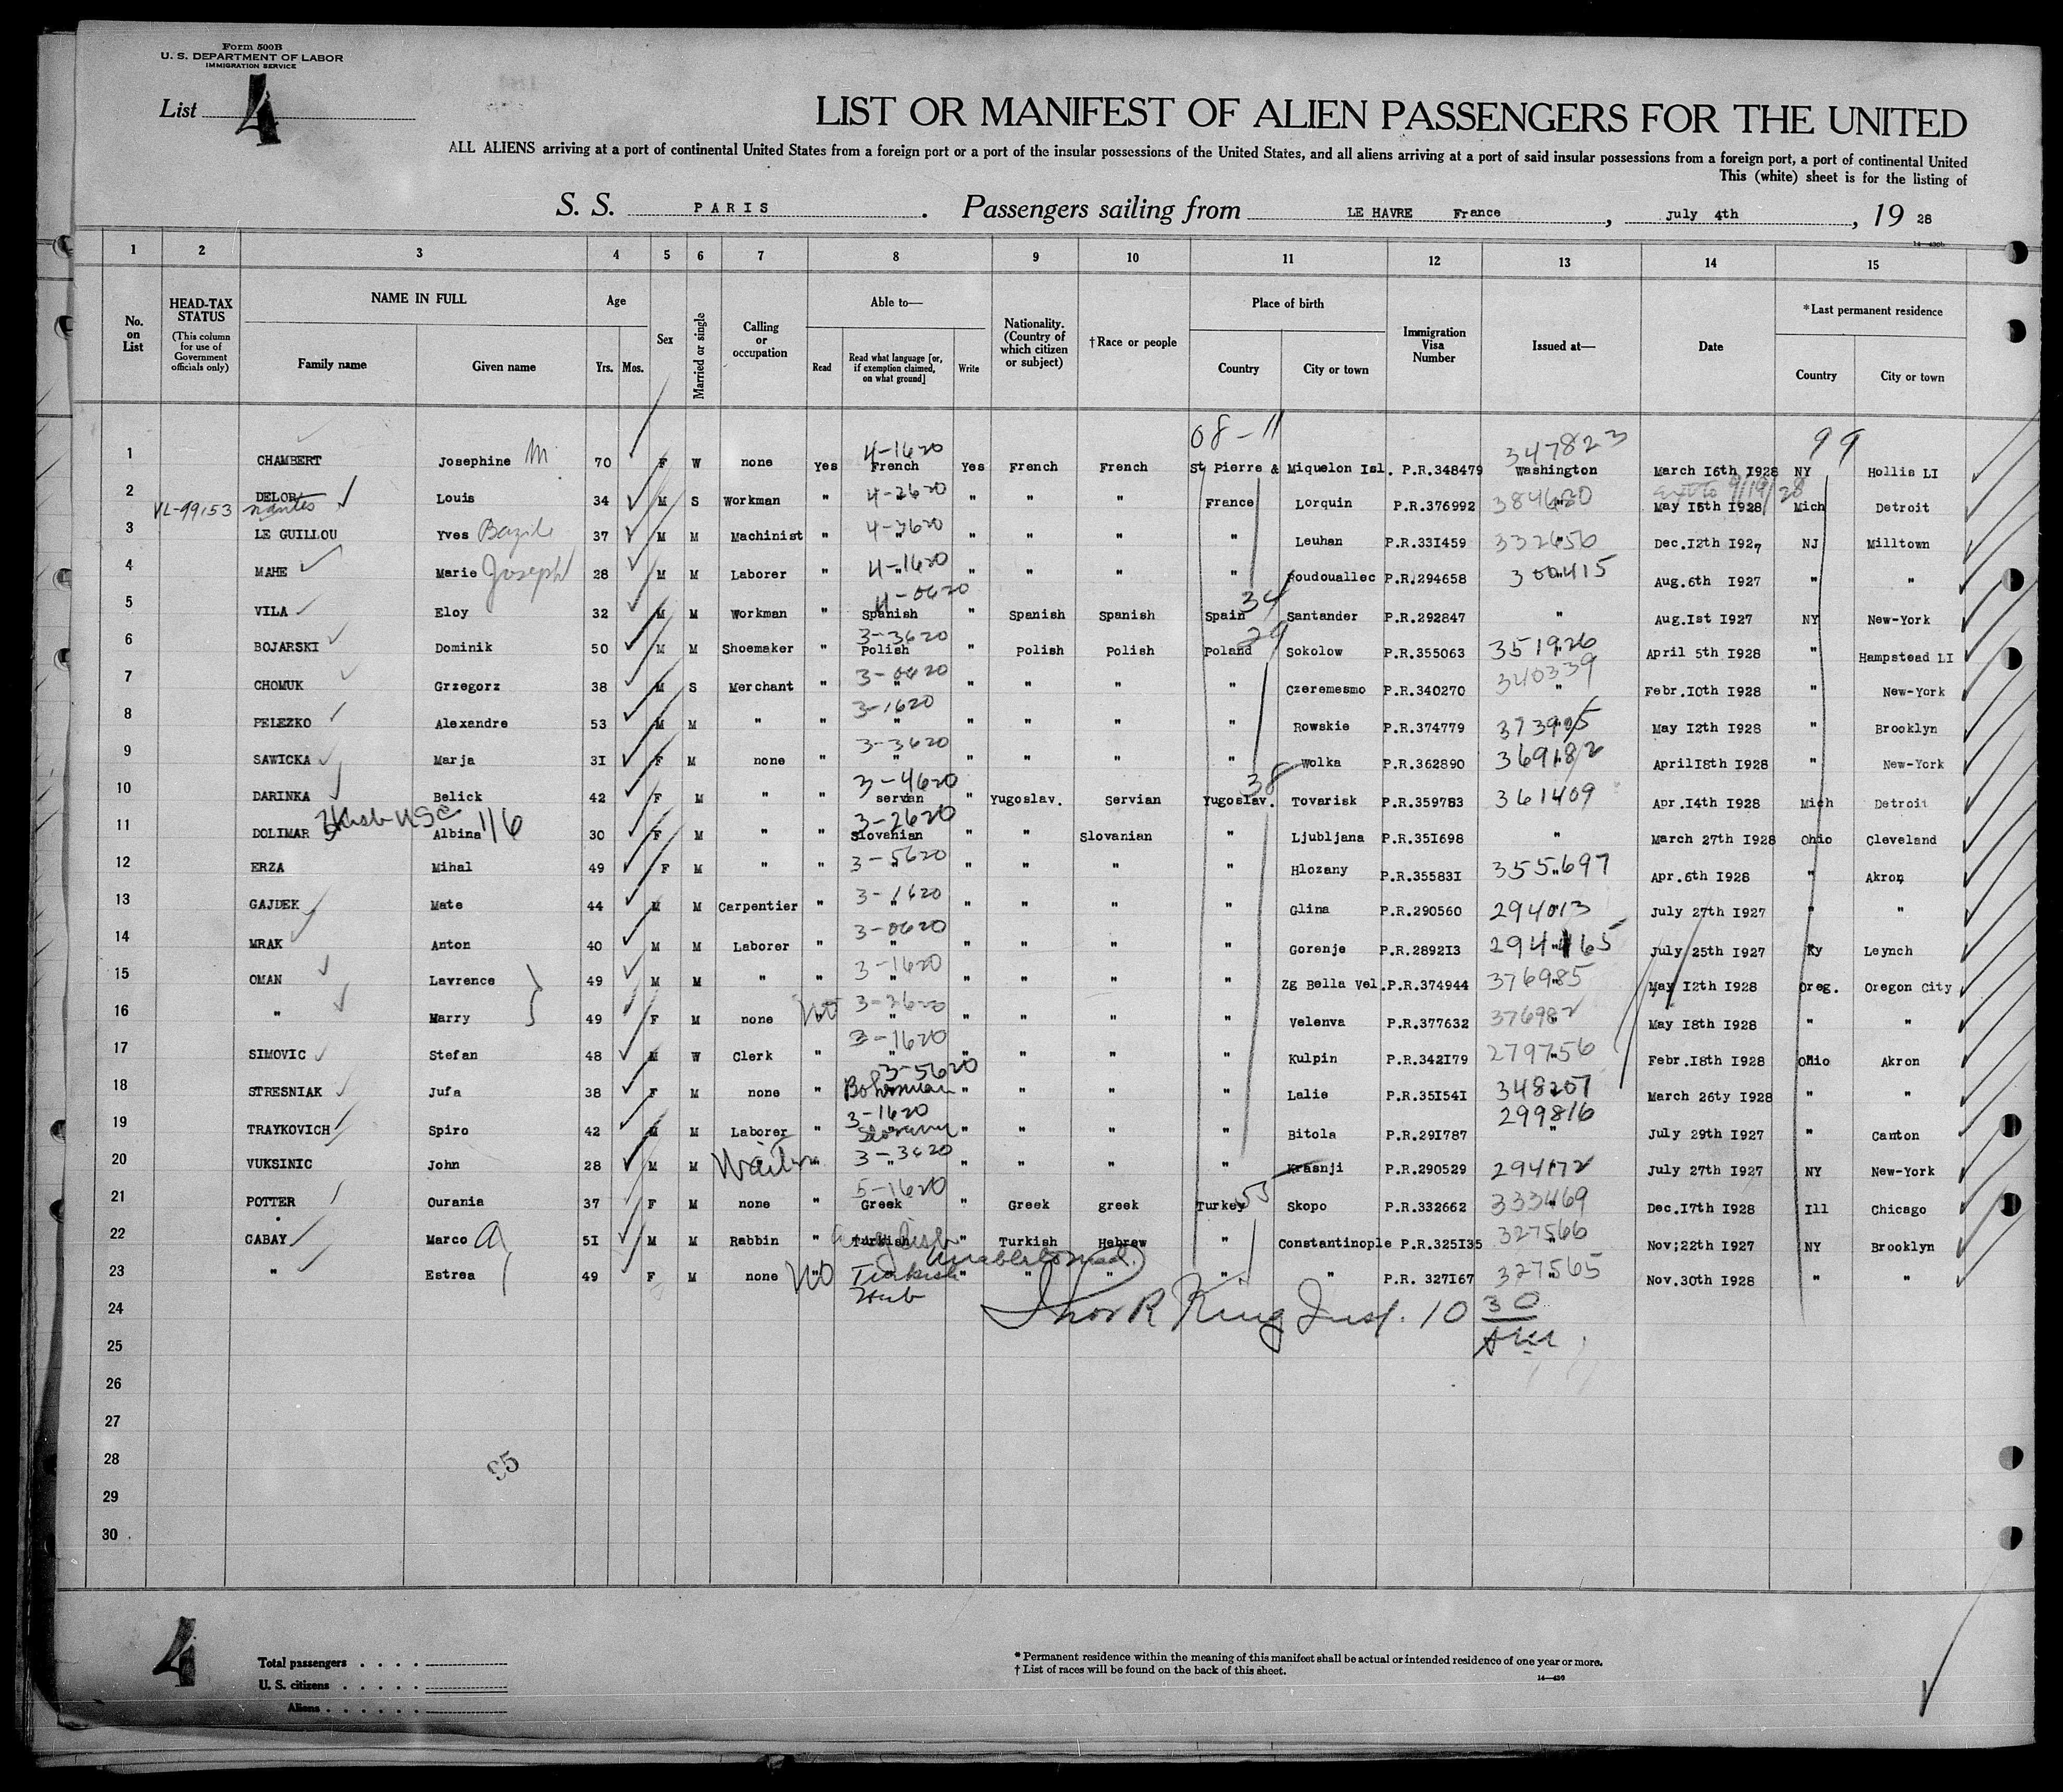 Form 500B
U. S. DEPARTMENT OF LABOR
IMMIGRATION SERVICE
List 4
LIST OR MANIFEST OF ALIEN PASSENGERS FOR THE UNITED
ALL ALIENS arriving at a port of continental United States from a foreign port or a port of the insular possessions of the United States, and all aliens arriving at a port of said insular possessions from a foreign port, a port of continental United
This (white) sheet is for the listing of
S. S. PARIS. Passengers sailing from LE HAVRE France, July 4th, 19 28
14—430b
1 2 3 4 5 6 7 8 9 10 11 12 13 14 15
No. on List
HEAD-TAX STATUS
(This column for use of Government officials only)
NAME IN FULL
Family name Given name
Age
Yrs. Mos.
Sex
Married or single
Calling or occupation
Able to—
Read Read what language [or, if exemption claimed, on what ground] Write
Nationality. (Country of which citizen or subject)
†Race or people
Place of birth
Country City or town
Immigration Visa Number
Issued at—
Date
*Last permanent residence
Country City or town
08-11 347823 99
4-1620
1 CHAMBERT Josephine M 70 F W none Yes French Yes French French St Pierre & Miquelon Isl. P.R.348479 Washington March 16th 1928 NY Hollis LI
2 DELOR Louis 34 M S Workman " 4-2620 " " " France Lorquin P.R.376992 384620 May 15th 1928 Mich Detroit
VL-99153 Nantes 9/19/28
3 LE GUILLOU Yves Bazile 37 M M Machinist " 4-3620 " " " " Leuhan P.R.331459 332656 Dec.12th 1927 NJ Milltown
4 MAHE Marie Joseph 28 M M Laborer " 4-1620 " " " " Roudouallec P.R.294658 300415 Aug.6th 1927 " "
4-0620 34
5 VILA Eloy 32 M M Workman " Spanish " Spanish Spanish Spain Santander P.R.292847 " Aug.1st 1927 NY New-York
3-3620 29
6 BOJARSKI Dominik 50 M M Shoemaker " Polish " Polish Polish Poland Sokolow P.R.355063 351926 April 5th 1928 " Hampstead LI
3-0620
7 CHOMUK Grzegorz 38 M S Merchant " " " " " " Czeremesmo P.R.340270 340339 Febr.10th 1928 " New-York
3-1620
8 PELEZKO Alexandre 53 M M " " " " " " " Rowskie P.R.374779 373905 May 12th 1928 " Brooklyn
3-3620
9 SAWICKA Marja 31 F M none " " " " " " Wolka P.R.362890 369182 April18th 1928 " New-York
3-4620 38
10 DARINKA Belick 42 F M " " servian " Yugoslav. Servian Yugoslav. Tovarisk P.R.359783 361409 Apr.14th 1928 Mich Detroit
Husb USC 1/6 3-2620
11 DOLIMAR Albina 30 F M " " Slovanian " " Slovanian " Ljubljana P.R.351698 " March 27th 1928 Ohio Cleveland
12 ERZA Mihal 49 F M " " 3-5620 " " " " Hlozany P.R.355831 355697 Apr.6th 1928 " Akron
13 GAJDEK Mate 44 M M Carpentier " 3-1620 " " " " Glina P.R.290560 294013 July 27th 1927 " "
14 MRAK Anton 40 M M Laborer " 3-0620 " " " " Gorenje P.R.289213 294465 July 25th 1927 Ky Leynch
15 OMAN Lavrence 49 M M " " 3-1620 " " " " Zg Bella Vel. P.R.374944 376985 May 12th 1928 Oreg. Oregon City
16 " Marry 49 F M none No 3-2620 " " " " Velenva P.R.377632 376982 May 18th 1928 " "
17 SIMOVIC Stefan 48 M W Clerk " 3-1620 " " " " Kulpin P.R.342179 279756 Febr.18th 1928 Ohio Akron
3-5620
18 STRESNIAK Jufa 38 F M none " Bohemian " " " " Lalie P.R.351541 348207 March 26ty 1928 " "
3-1620 299816
19 TRAYKOVICH Spiro 42 M M Laborer " " " " " Bitola P.R.291787 " July 29th 1927 " Canton
20 VUKSINIC John 28 M M Waiter " 3-3620 " " " " Krasnji P.R.290529 294172 July 27th 1927 NY New-York
5-1620 55
21 POTTER Ourania 37 F M none " Greek " Greek greek Turkey Skopo P.R.332662 333469 Dec.17th 1928 Ill Chicago
English
22 GABAY Marco A 51 M M Rabbin " Turkish " Turkish Hebrew " Constantinople P.R.325135 327566 Nov;22th 1927 NY Brooklyn
Unable to read
23 " Estrea 49 F M none No Turkish " " " " " P.R. 327167 327565 Nov.30th 1928 " "
Heb
24 King Insp. 10 30
25
26
27
28
29
30
95
4
Total passengers
U. S. citizens
Aliens
* Permanent residence within the meaning of this manifest shall be actual or intended residence of one year or more.
† List of races will be found on the back of this sheet.
14—430